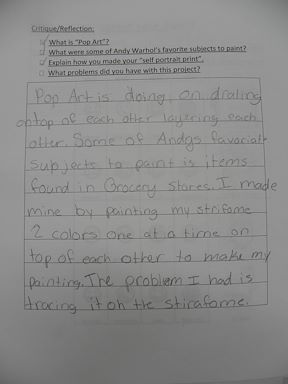 Critique/Reflection:
What is "Pop Art"?
What were some of Andy Warhol's favorite subjects to paint?
Explain how you made your "self portrait print".
What problems did you have with this project?
Pop Art is doing on draling
ontop of each other layering each
other. Some of Andys favoriate
subjects to paint is items
found in Grocery stares. I made
mine by painting my strifome
2 colors one at a time on
top of each other to make my
painting. The problem I had is
tracing it oh the stirafome.